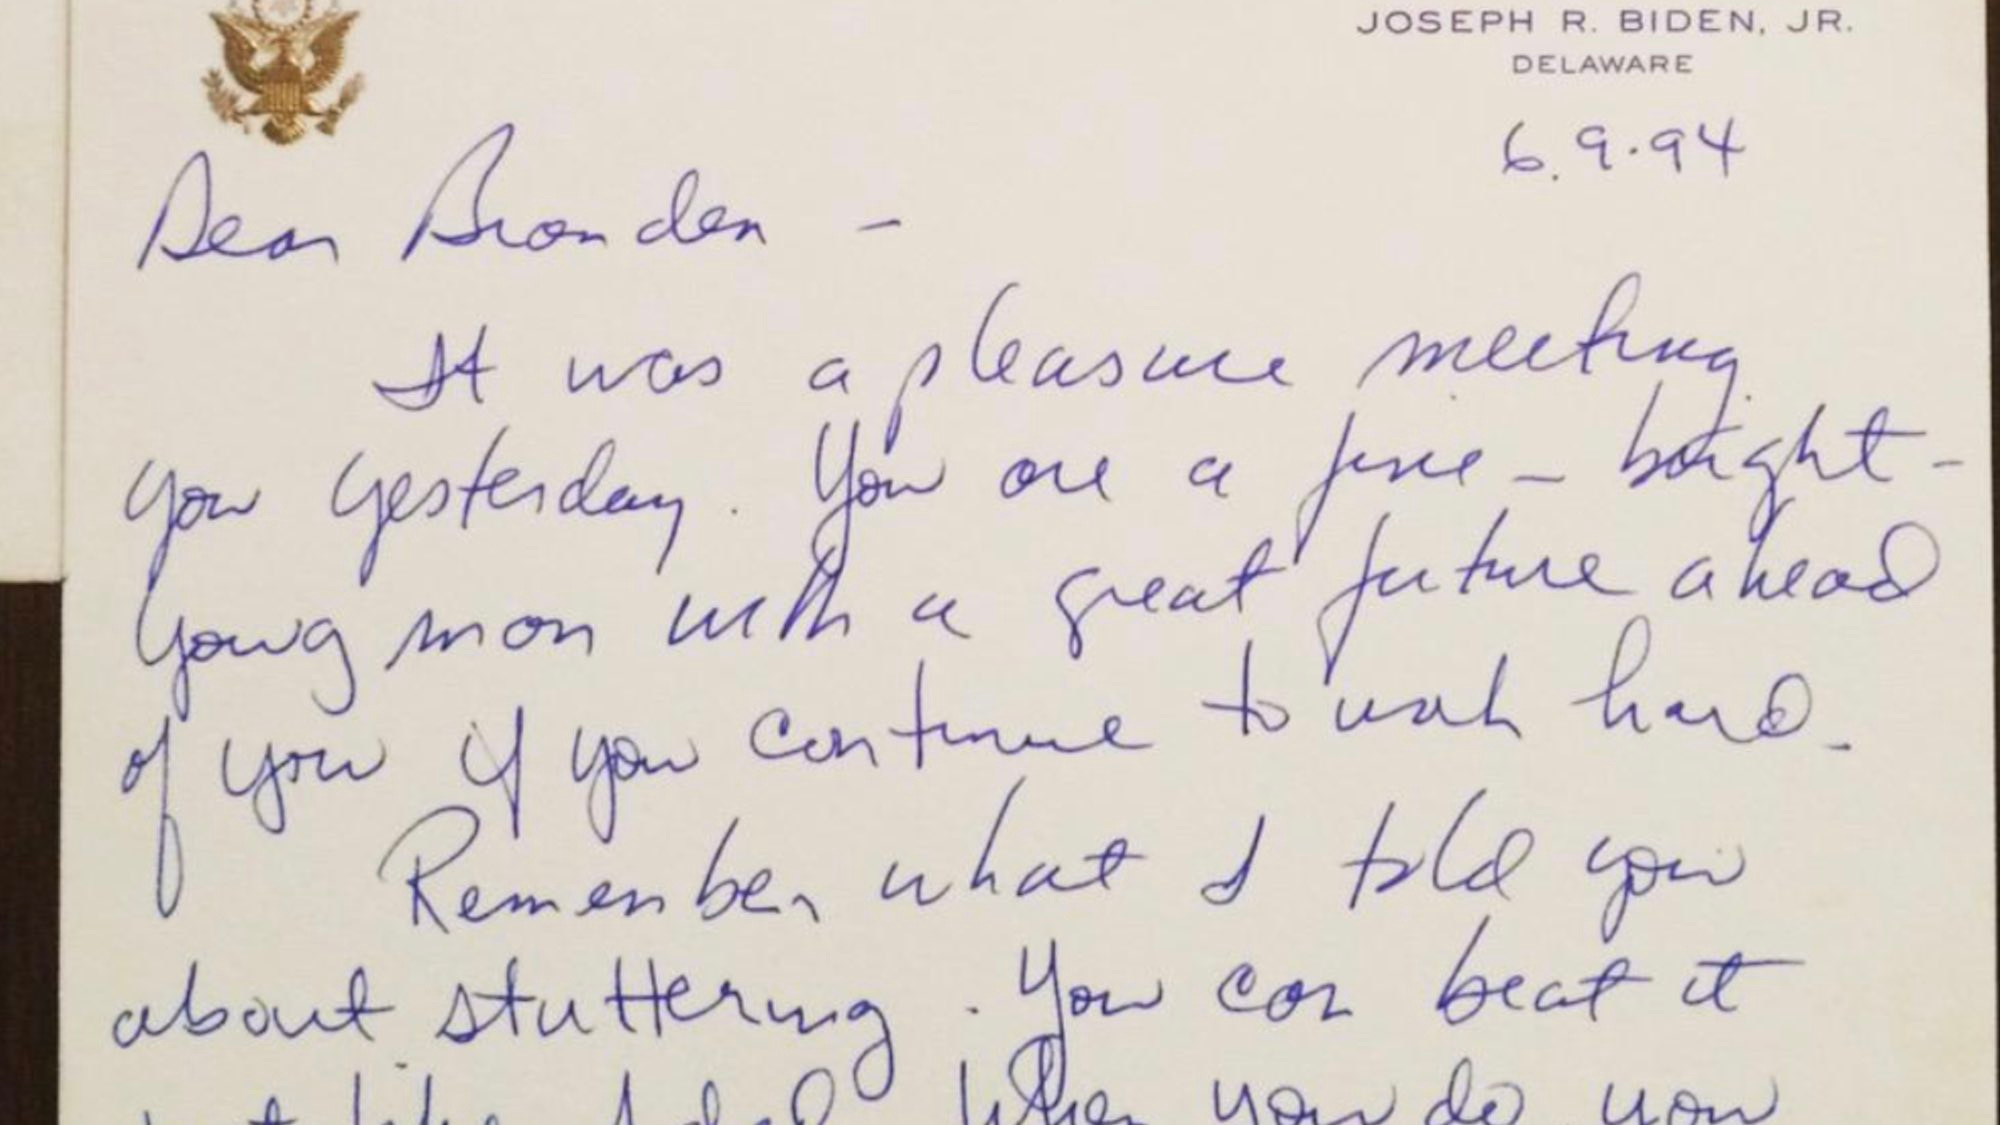 JOSEPH R. BIDEN, JR.
DELAWARE
6.9.94
Dear Branden -
It was a pleasure meeting
you yesterday. You are a fine - bright -
young man with a great future ahead
of you if you continue to work hard.
Remember what I told you
about stuttering. You can beat it
just like I did. When you do, you